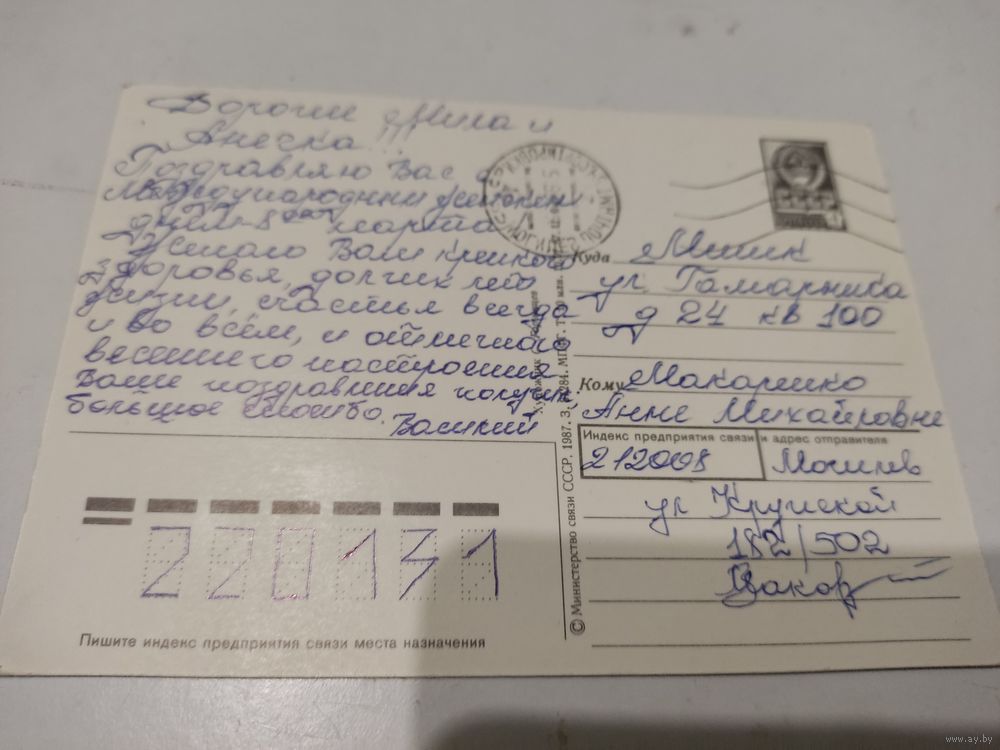 Дорогие Мила и
Анечка!!!
Поздравляю Вас с
Международным женским
днём-8ое марта
Желаю Вам крепкого
здоровья, долгих лет
жизни, счастья всегда
и во всём, и отличного
весеннего настроения
Ваши поздравления получил,
большое спасибо. Василий
Куда Минск
ул. Гамарника
д 24 кв 100
Кому Макаренко
Анне Михайловне
Индекс предприятия связи и адрес отправителя
212008 Могилев
ул Крупской
182/502
© Министерство связи СССР. 1987. З.
220131
Пишите индекс предприятия связи места назначения
www.ay.by